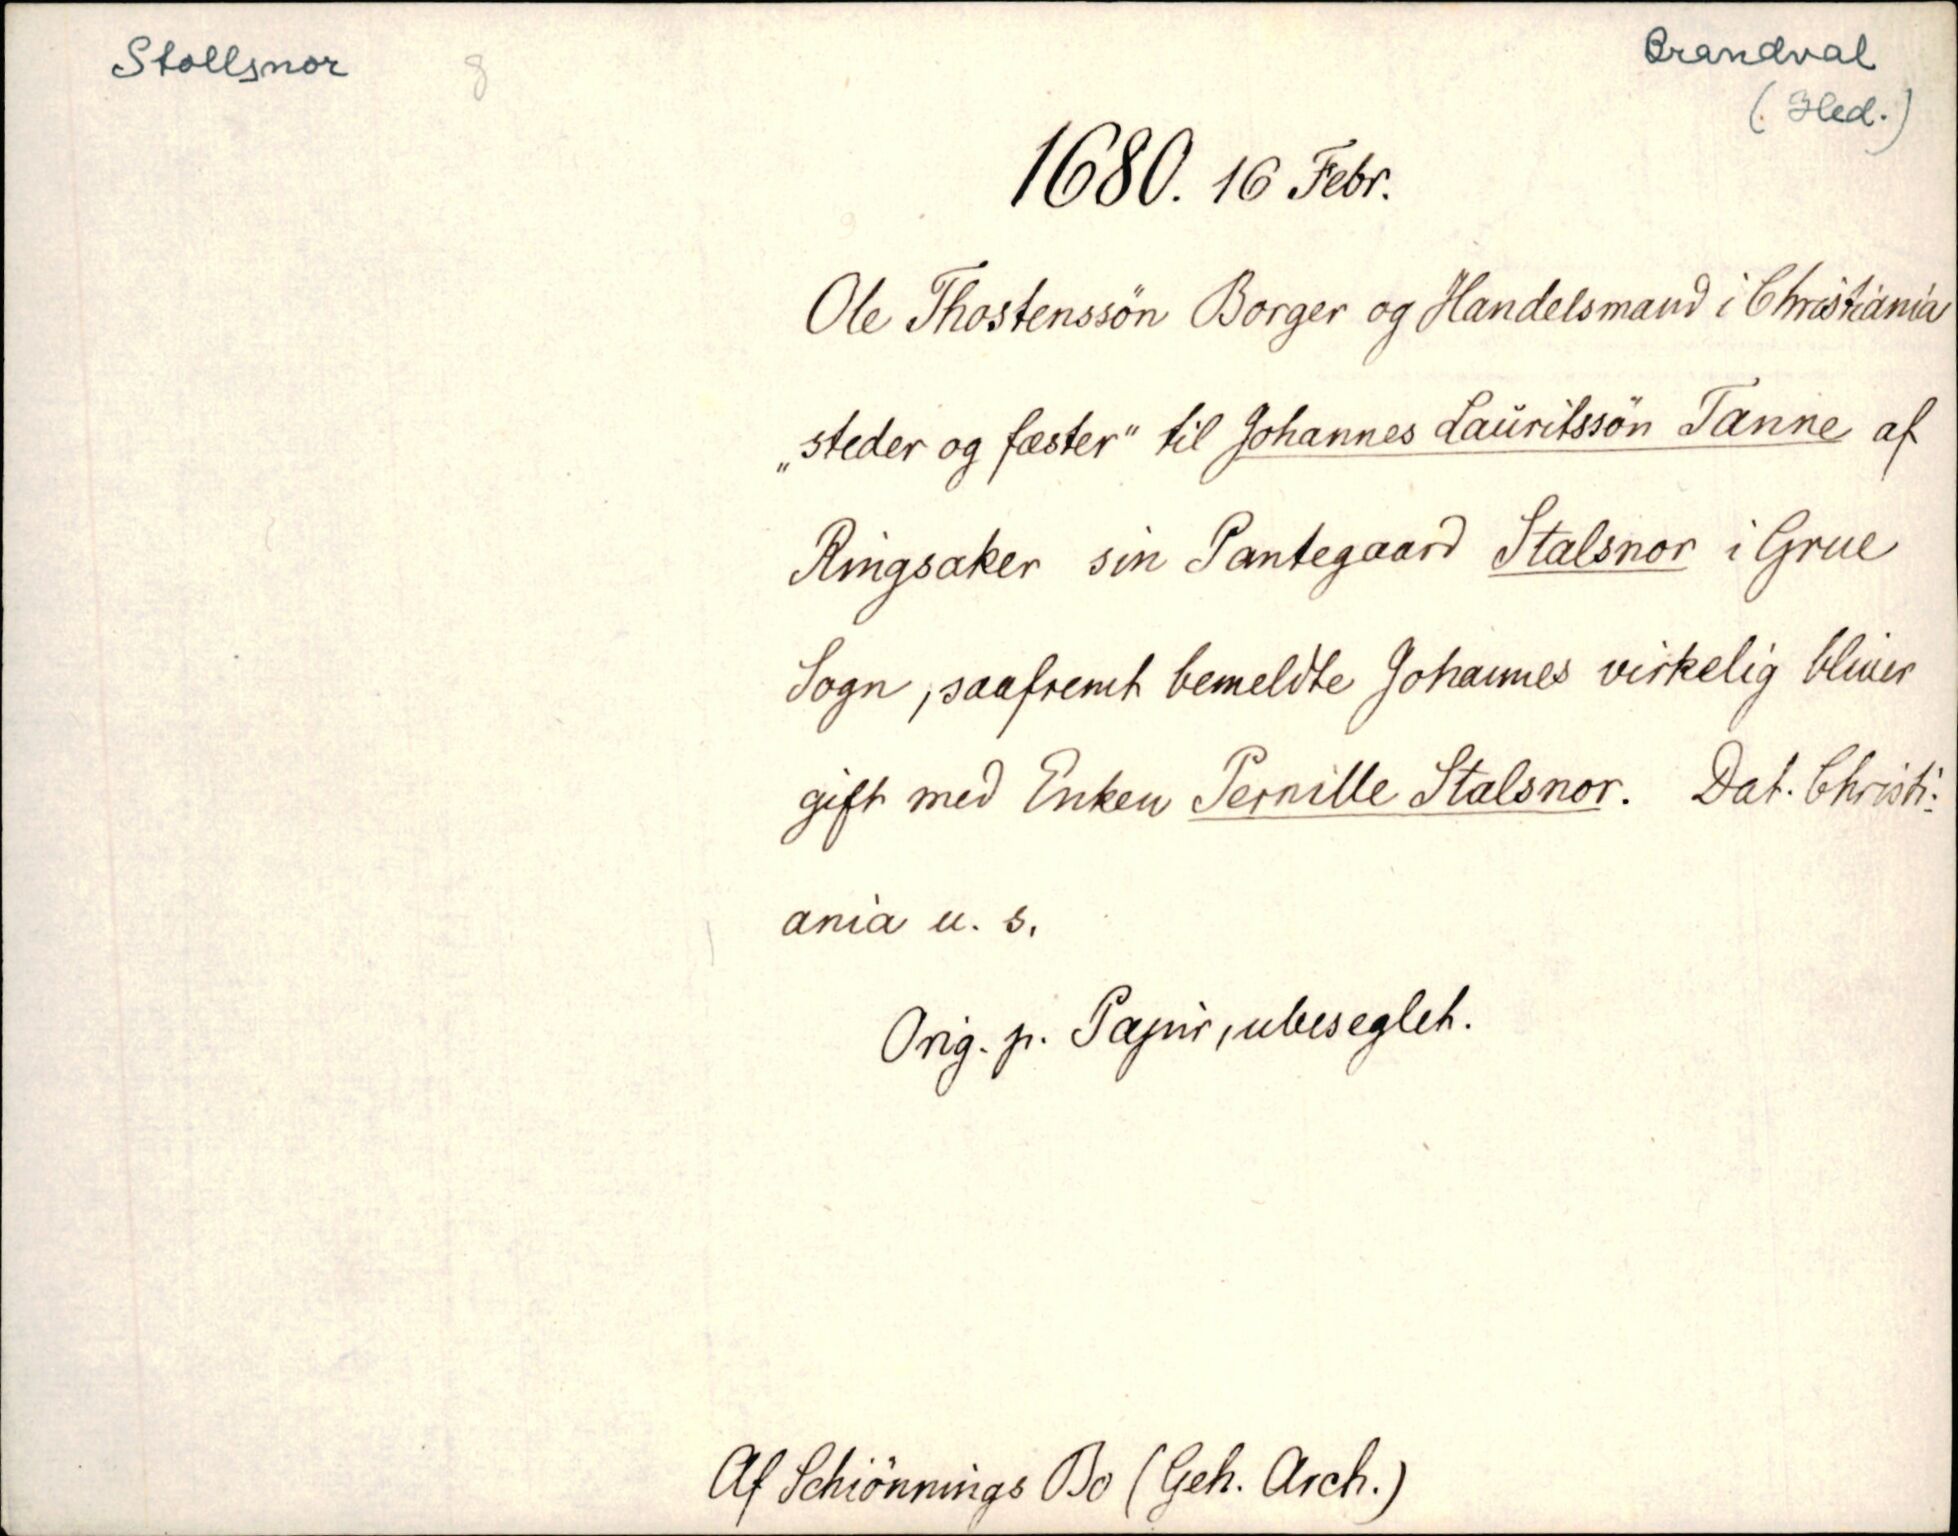 Stallsnor 8 Brandval
(Hed.)
1680. 16 Febr.
Ole Thostenssön Borger og Handelsmand i Christiania
„steder og fæster“ til Johannes Lauritssön Tanne af
Ringsaker sin Pantegaard Stalsnor i Grue
Sogn, saafremt bemeldte Johannes virkelig bliver
gift med Enken Pernille Stalsnor. Dat. Christi-
ania u. s.
Orig. p. Papir, ubeseglet.
Af Schiönnings Bo (Geh. Arch.)